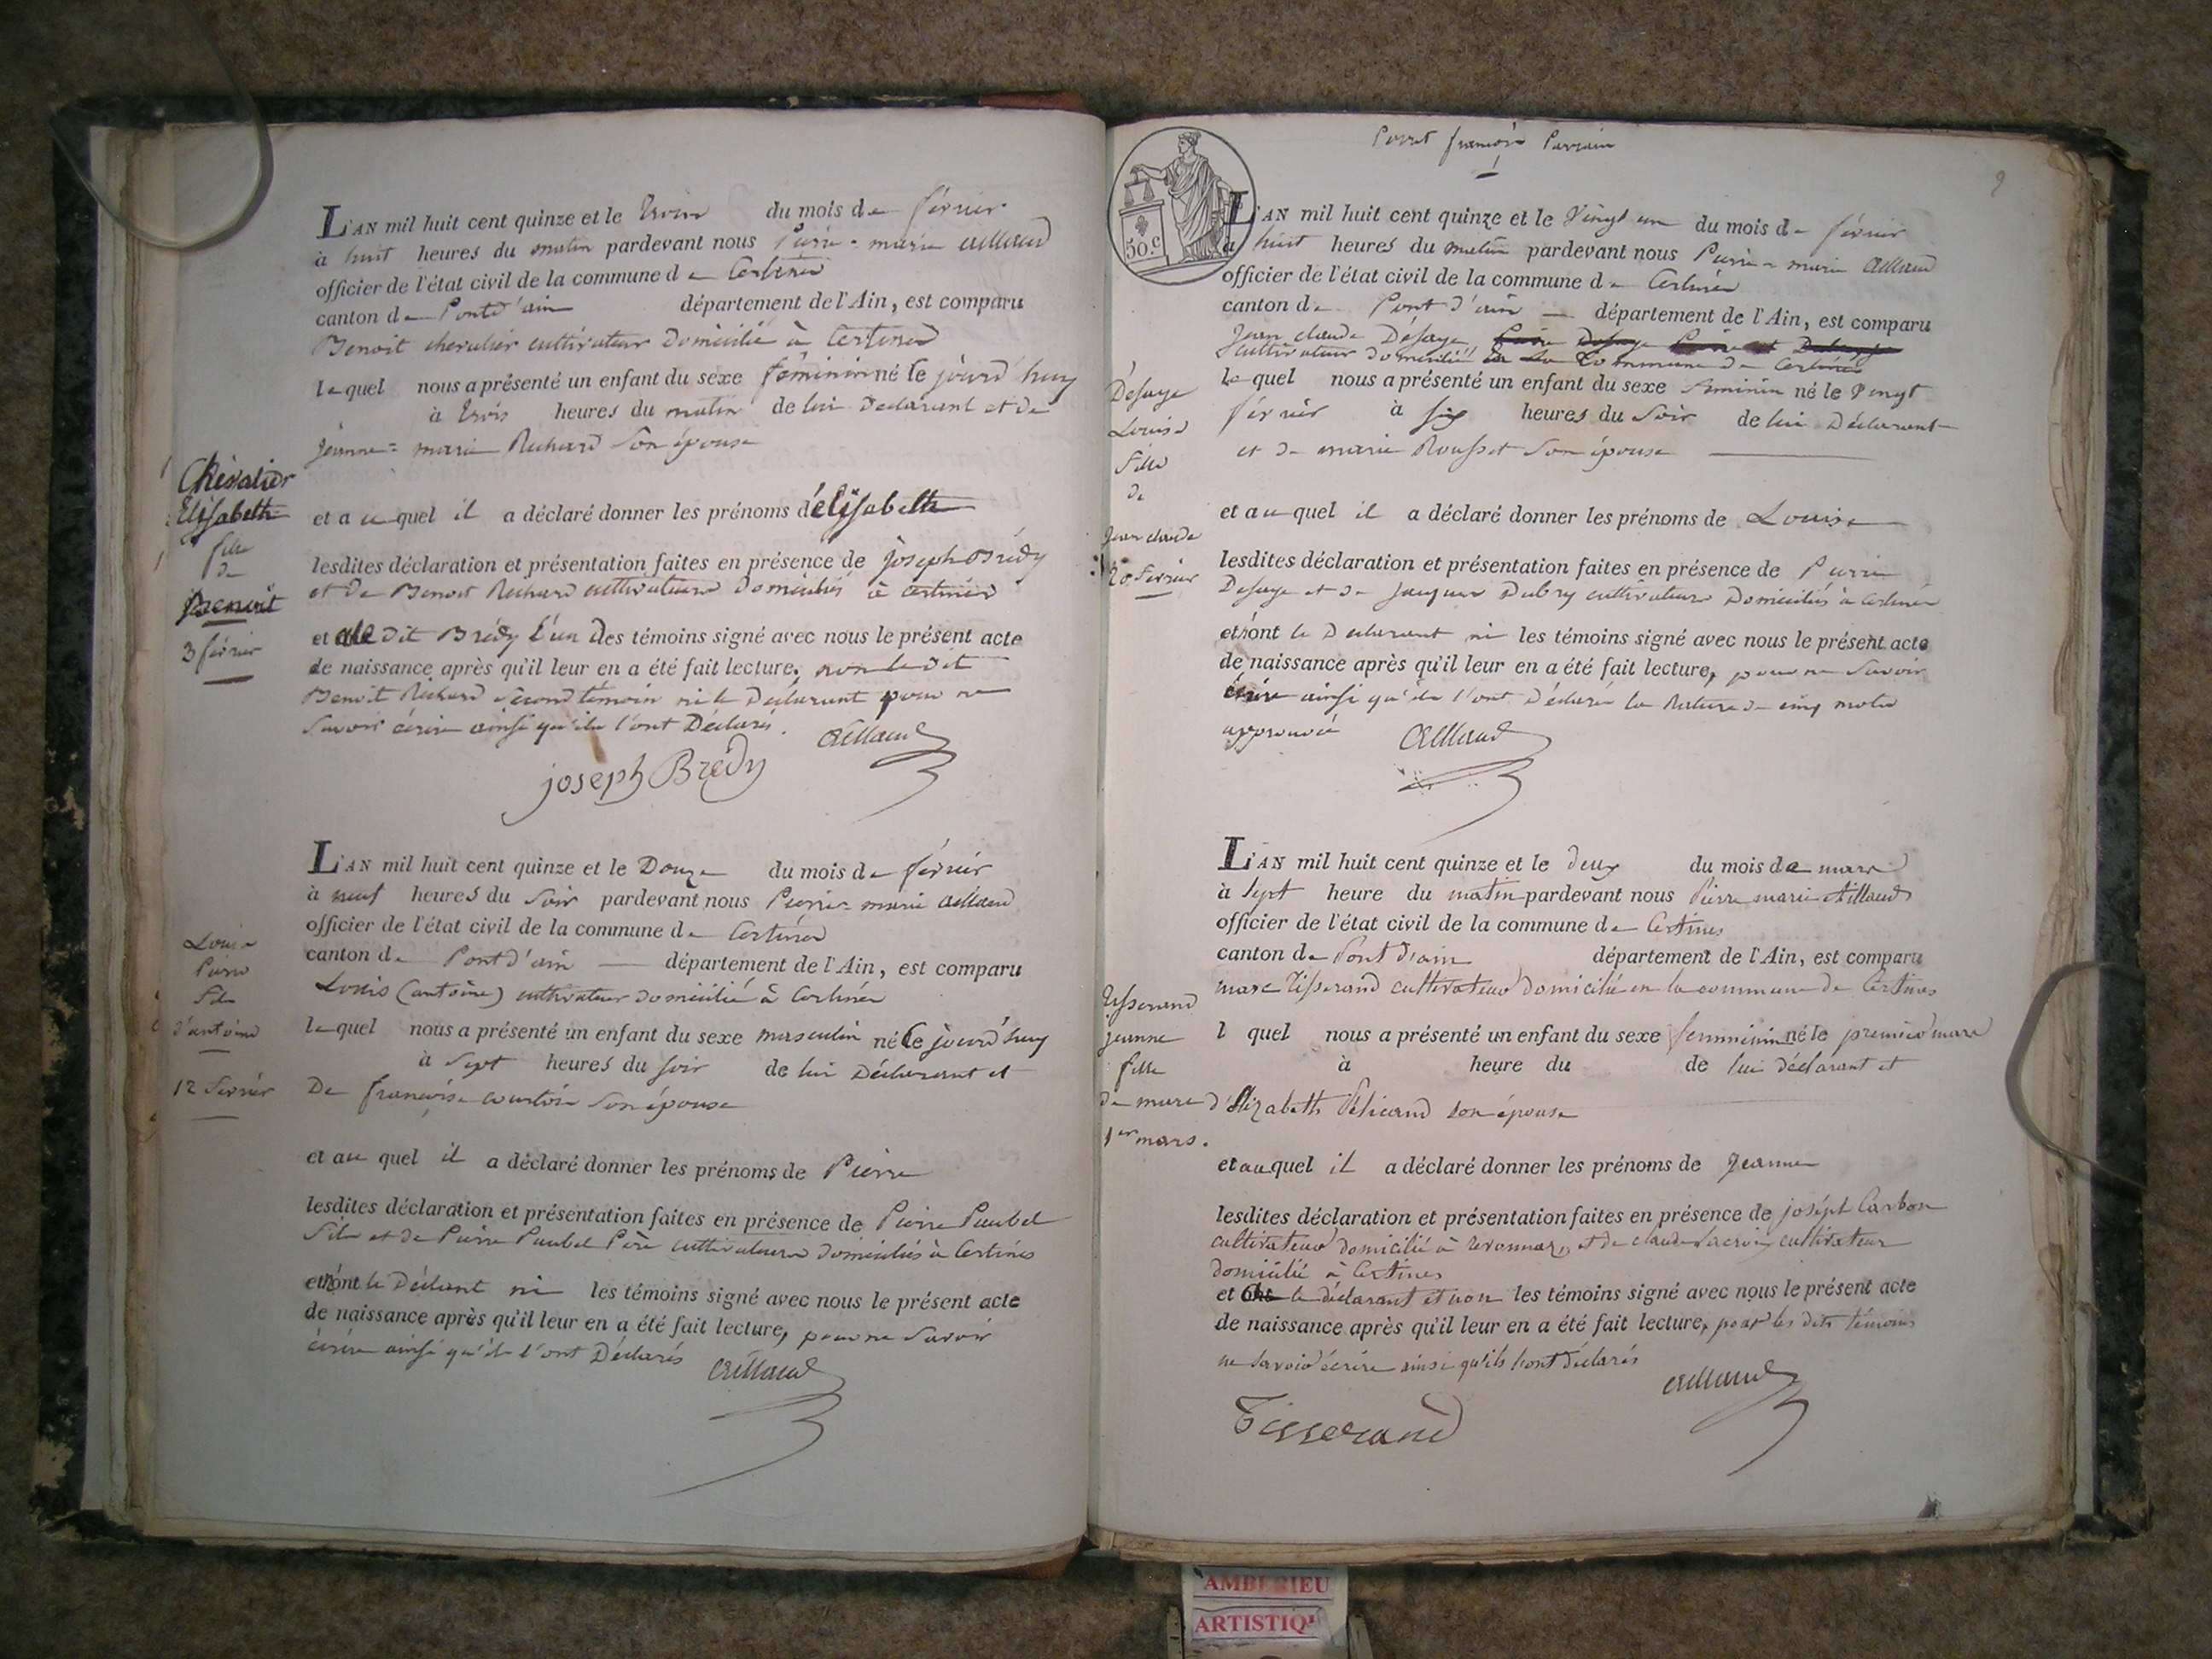 L'AN mil huit cent quinze et le trois du mois de février
à huit heures du matin pardevant nous Pierre-marie aillaud
officier de l'état civil de la commune de Certines
canton de Pontd'ain département de l'Ain, est comparu
Benoit chevalier cultivateur domicilié à Certines
lequel nous a présenté un enfant du sexe féminin né le jourd'huy
à trois heures du matin de lui Déclarant et de
jeanne=marie Richard son épouse
Chevalier
Elisabeth
fille
de
Benoit
3 février
et au quel il a déclaré donner les prénoms d'élisabeth
lesdites déclaration et présentation faites en présence de joseph Brédy
et de Benoit Richard cultivateurs domiciliés à certines
et le dit Brédy l'un des témoins signé avec nous le présent acte
de naissance après qu'il leur en a été fait lecture, non le dit
Benoit Richard second témoin ni le Déclarant pour ne
savoir écrire ainsi qu'ils l'ont Déclaré. aillaud
joseph Brédy
L'AN mil huit cent quinze et le Douze du mois de février
à neuf heures du soir pardevant nous Pierre-marie aillaud
officier de l'état civil de la commune de Certines
canton de Pont d'ain département de l'Ain, est comparu
Louis (antoine) cultivateur domicilié à Certines
Louis
Pierre
fils
d'antoine
12 février
lequel nous a présenté un enfant du sexe masculin né le jourd'huy
à sept heures du soir de lui Déclarant et
De françoise courtois son épouse
et au quel il a déclaré donner les prénoms de Pierre
lesdites déclaration et présentation faites en présence de Pierre Paubel
fils et de Pierre Paubel Père cultivateurs domiciliés à Certines
et n'ont le Déclant ni les témoins signé avec nous le présent acte
de naissance après qu'il leur en a été fait lecture, pour ne savoir
écrire ainsi qu'ils l'ont Déclarés aillaud
françois
2
50.c
L'AN mil huit cent quinze et le Vingt un du mois de février
à huit heures du matin pardevant nous Pierre-marie aillaud
officier de l'état civil de la commune de Certines
canton de Pont d'ain département de l'Ain, est comparu
Jean claude Défaye
cultivateur domicilié en la Commune de Certines
lequel nous a présenté un enfant du sexe féminin né le Vingt
février à six heures du soir de lui Déclarant
et de marie Rousset son épouse
Défaye
Louise
fille
de
Jean claude
20 février
et au quel il a déclaré donner les prénoms de Louise
lesdites déclaration et présentation faites en présence de Pierre
Defaye et de jacques Dubry cultivateurs Domiciliés à Certines
et n'ont le Déclarant ni les témoins signé avec nous le présent acte
de naissance après qu'il leur en a été fait lecture, pour ne savoir
écrire ainsi qu'ils l'ont Déclaré la Rature de cinq mots
approuvée aillaud
L'AN mil huit cent quinze et le deux du mois de mars
à sept heure du matin pardevant nous Pierre marie Aillaud
officier de l'état civil de la commune de Certines
canton de Pont d'ain département de l'Ain, est comparu
marc Tisserand cultivateur domicilié en la commune de Certines
Tisserand
jeanne
fille
de marc
1er mars.
l quel nous a présenté un enfant du sexe femminin né le premier mars
à heure du de lui déclarant et
d'Elizabeth Pélicand son épouse
et au quel il a déclaré donner les prénoms de Jeanne
lesdites déclaration et présentation faites en présence de joséph Carbon
cultivateur domicilié à tronnas, et de claude Lacroix cultivateur
domicilié à Certines
et le déclarant et non les témoins signé avec nous le présent acte
de naissance après qu'il leur en a été fait lecture, pour les dits témoins
ne savoir écrire ainsi qu'ils l'ont déclarés
aillaud
Tisserand
AMBERIEU
ARTISTIQ